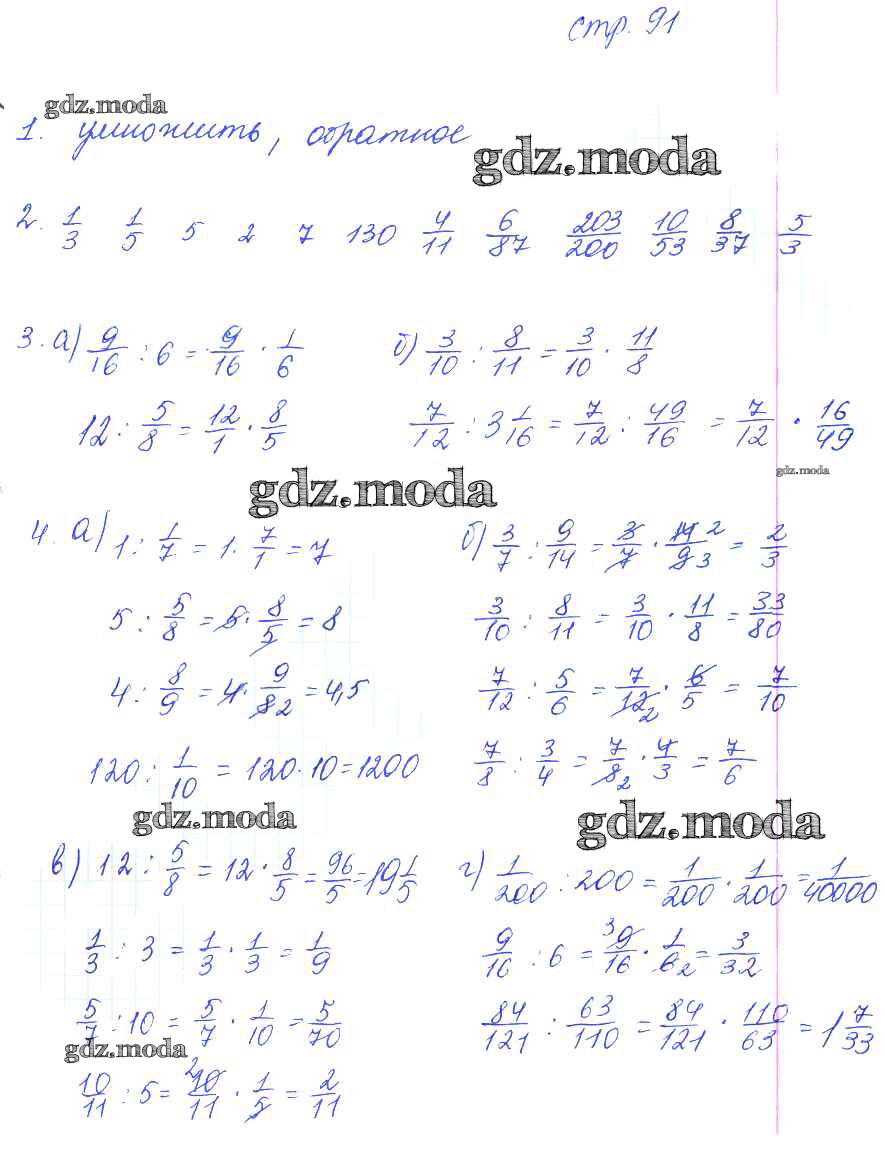 стр. 91
gdz.moda
1. умножить, обратное
gdz.moda
2. 1/3 1/5 5 2 7 130 4/11 6/87 203/200 10/53 8/37 5/3
3. а) 9/16 : 6 = 9/16 · 1/6 б) 3/10 : 8/11 = 3/10 · 11/8
12 : 5/8 = 12/1 · 8/5 7/12 : 3 1/16 = 7/12 : 49/16 = 7/12 · 16/49
gdz.moda
gdz.moda
4. а) 1 : 1/7 = 1 · 7/1 = 7 б) 3/7 : 9/14 = 3/7 · 14 2/9 3 = 2/3
5 : 5/8 = 5 · 8/5 = 8 3/10 : 8/11 = 3/10 · 11/8 = 33/80
4 : 8/9 = 4 · 9/8 2 = 4,5 7/12 : 5/6 = 7/12 2 · 6/5 = 7/10
120 : 1/10 = 120 · 10 = 1200 7/8 : 3/4 = 7/8 2 · 4/3 = 7/6
gdz.moda gdz.moda
в) 12 : 5/8 = 12 · 8/5 = 96/5 = 19 1/5 г) 1/200 : 200 = 1/200 · 1/200 = 1/40000
1/3 : 3 = 1/3 · 1/3 = 1/9 9/16 : 6 = 3 9/16 · 1/6 2 = 3/32
5/7 : 10 = 5/7 · 1/10 = 5/70 84/121 : 63/110 = 84/121 · 110/63 = 1 7/33
gdz.moda
10/11 : 5 = 2 10/11 · 1/5 = 2/11